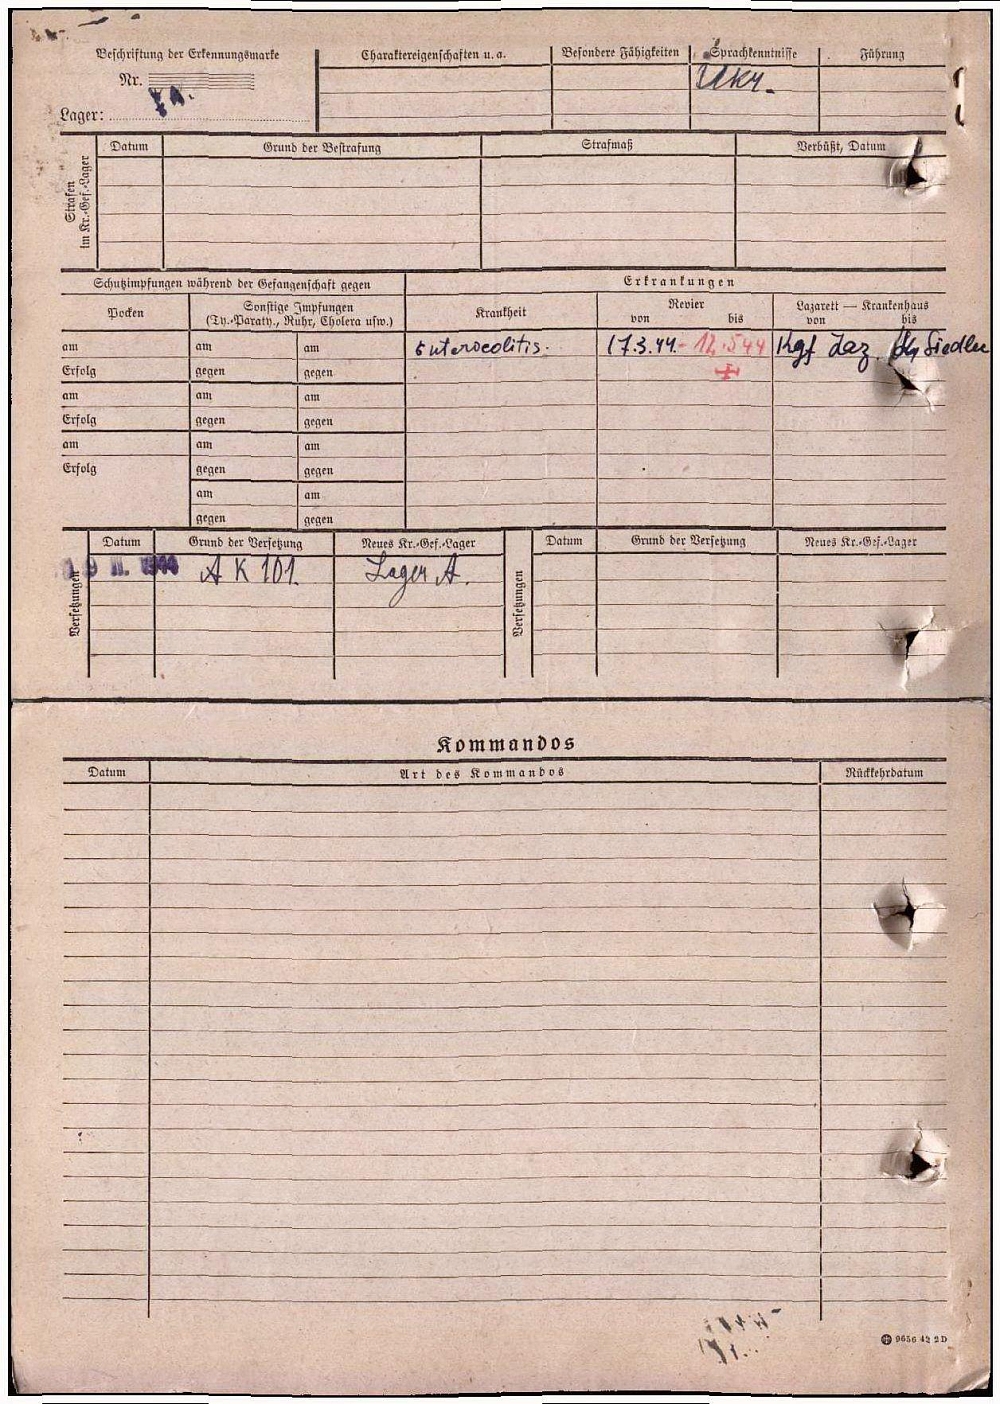 Beschriftung der Erkennungsmarke
Charaktereigenschaften u. a.
Besondere Fähigkeiten
Sprachkenntnisse
Führung
Nr.
Ukr.
Lager:
Strafen im Kr.-Gef.-Lager
Datum
Grund der Bestrafung
Strafmaß
Verbüßt, Datum
Schutzimpfungen während der Gefangenschaft gegen
Erkrankungen
Pocken
Sonstige Impfungen
(Ty.-Paraty., Ruhr, Cholera usw.)
Krankheit
Revier
von bis
Lazarett — Krankenhaus
von bis
am am am Enterocolitis. 17.3.44. - 12.5.44 Kgf Laz. Siedler
Erfolg gegen gegen
am am am
Erfolg gegen gegen
am am am
Erfolg gegen gegen
am am
gegen gegen
Versetzungen
Datum
Grund der Versetzung
Neues Kr.-Gef.-Lager
Versetzungen
Datum
Grund der Versetzung
Neues Kr.-Gef.-Lager
1944 A K 101. Lager A.
Kommandos
Datum
Art des Kommandos
Rückkehrdatum
9656 42 2 D